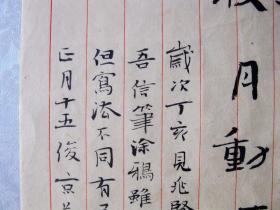 月動
歲次丁亥見兆堅
吾信筆塗鴉雖
但寫法不同有
正月十五俊京